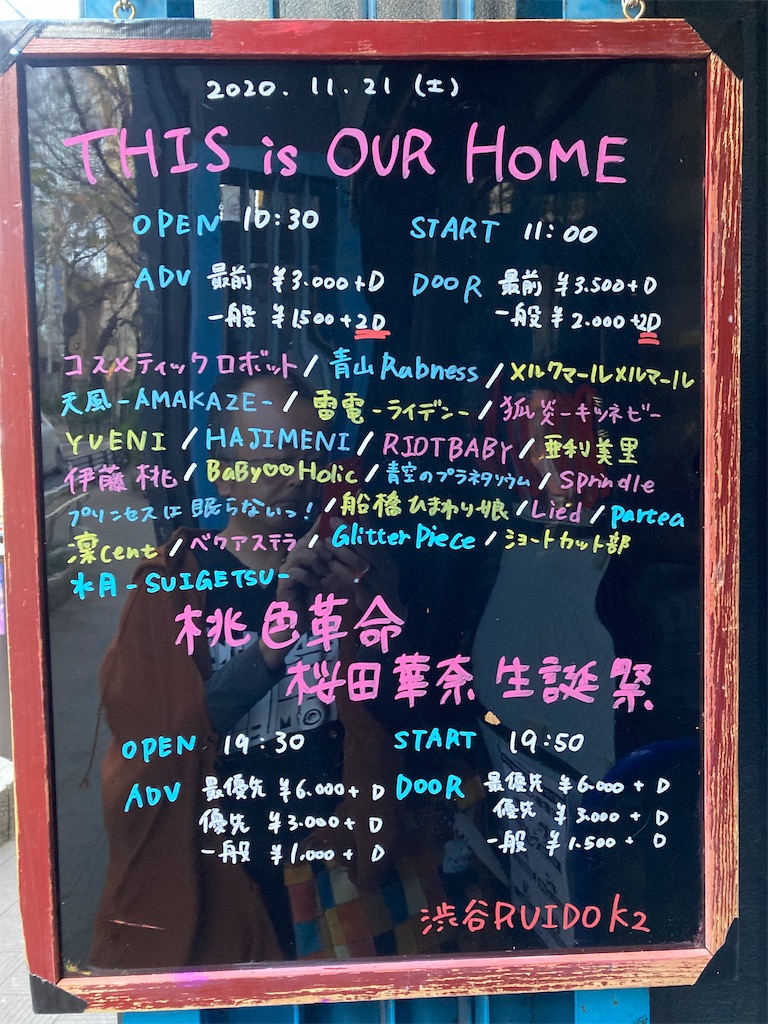 2020. 11. 21 (土)
THIS is OUR HOME
OPEN 10:30 START 11:00
ADV 最前 ¥3.000+D DOOR 最前 ¥3.500+D
一般 ¥1500+2D 一般 ¥2.000+2D
コスメティックロボット / 青山Rabness / メルクマールメルマール
天風-AMAKAZE- / 雷電-ライデン- / 狐炎-キツネビ-
YUENI / HAJIMENI / RIOTBABY / 亜利美里
伊藤桃 / BaBy♡♡Holic / 青空のプラネタリウム / Sprindle
プリンセスは眠らないっ! / 船橋ひまわり娘 / Lied / partea
凛cent / ベクアステラ / GlitterPiece / ショートカット部
水月-SUIGETSU-
桃色革命
桜田華奈 生誕祭
OPEN 19:30 START 19:50
ADV 最優先 ¥6.000+D DOOR 最優先 ¥6.000+D
優先 ¥3.000+D 優先 ¥3.000+D
一般 ¥1.000+D 一般 ¥1.500+D
渋谷RUIDO K2